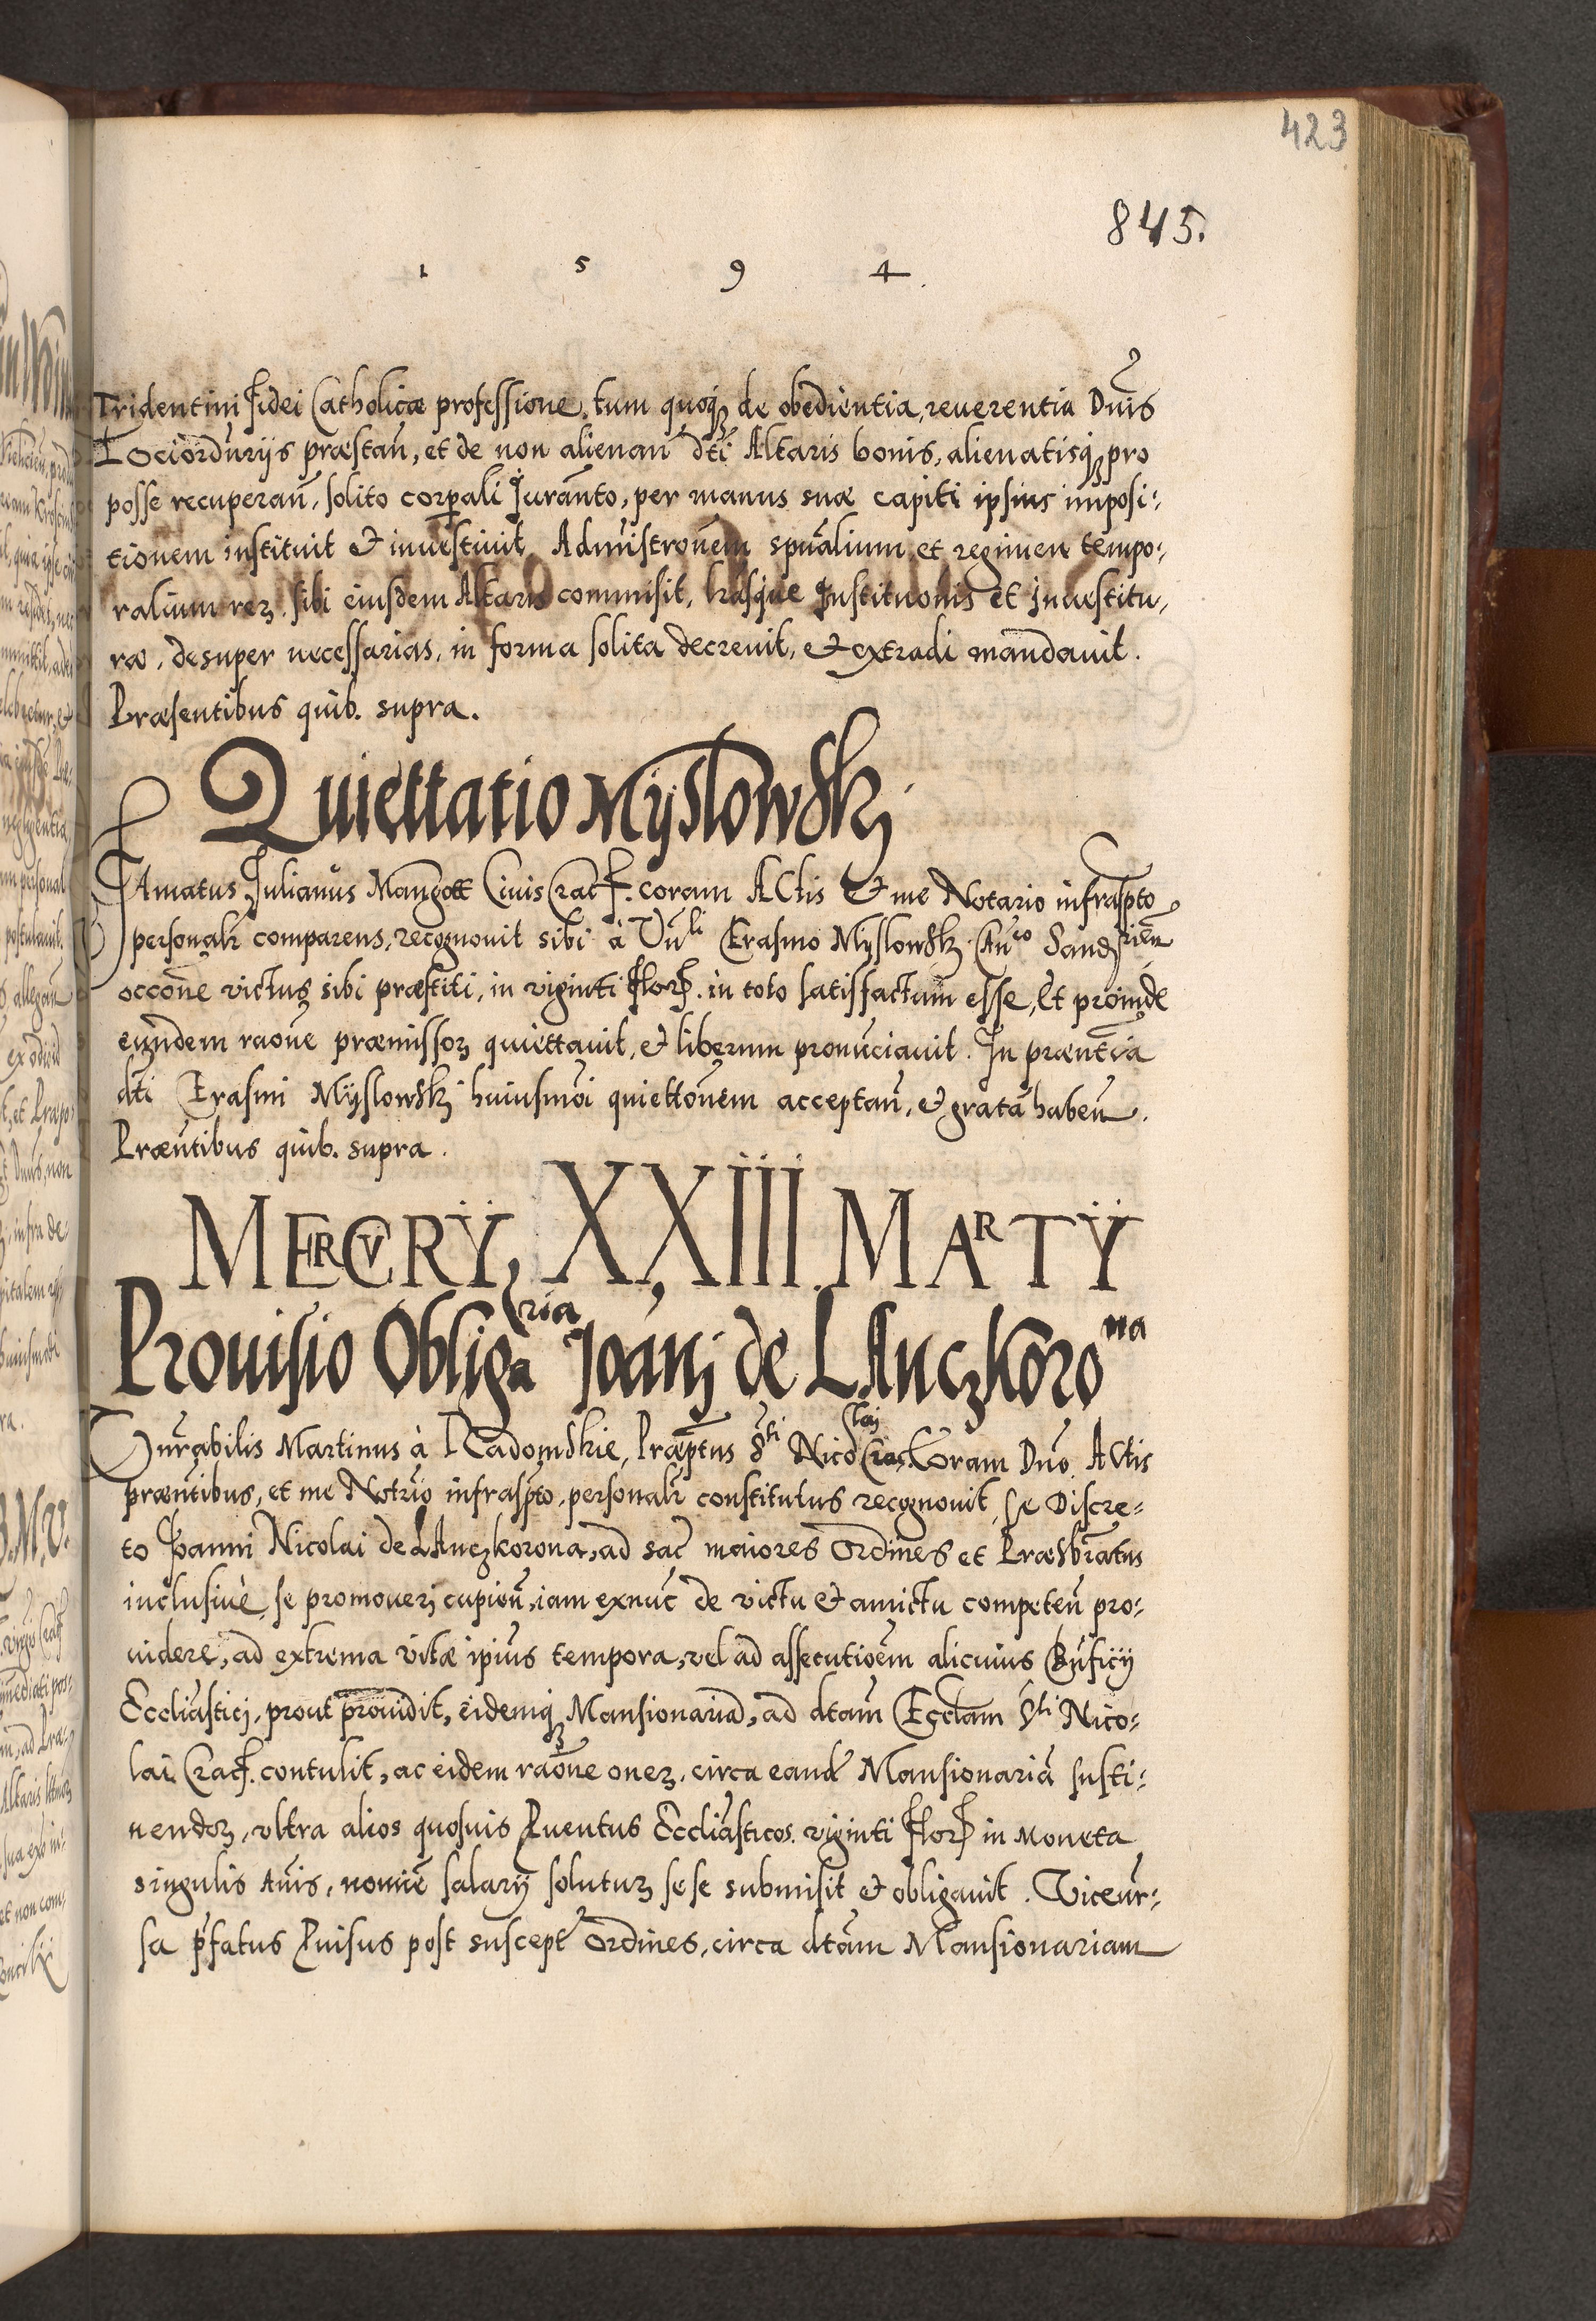 423
845.
1 5 9 4
Tridentini Fidei Catholicæ professione, tum quoq₃ de obedientia, reuerentia Dn̄is
Lociordūriȳs præstan̄, et de non alienan̄ dti Altaris bonis, alienatisq₃ pro
posse recuperan̄, solito corpali Juran̄to, per manus suæ capiti ipsius imposi:
tionem instituit et inuestiuit, Admīstronem spūalium et regimen tempo:
ralium rerꝫ sibi eiusdem Altaris commisit, lrasque Institucionis et Inuestitu,
ræ, desuper necessarias, in forma solita decreuit, et extradi mandauit.
Præsentibus quib. supra.
Quiettatio Mÿslowskj
Famatus Julianus Mangott Ciuis Crac̄. coram Actis et me Notario infrasp̄to
personalr comparens, recognouit sibi à Vn̄li Erasmo Mÿslowskj Can̄co Sandrien̄
occōne victus sibi præstiti, in viginti Flor. in toto satisfactum esse, Et proinde
eundem raōne præmissorꝫ quiettauit, et liberum pronūciauit. In præn̄tia
dti Erasmi Mÿslowskj huiusmōi quiettōnem acceptan̄, et gratā haben̄.
Præn̄tibus quib. supra.
MERCVRŸ, XXIII MARTŸ
Prouisio Obligaria Joanj de LAnczkorona
Honrabilis Martinus à Radomskie, Præp̄tus S̄ti Nicolai Crac. Coram Dn̄o Actis
præn̄tibus, et me Notrio infrasp̄to, personalr constitutus recognouit, se Discre=
to Joanni Nicolai de LAnczkorona, ad sac̄ maiores Ordines et Præsbratus
inclusiuè, se promouerj cupien̄, iam exnūc de victu et amictu competen̄ pro:
uidere, ad extrema vitæ ipius tempora, vel ad assecutioēm alicuius Bn̄ficÿ
Eccliasticj, prout prouidit, eidemq₃ Mansionariā, ad dtam Ecclam S̄ti Nico:
lai Crac̄. contulit, ac eidem raōne onerꝫ, circa eand̄ Mansionariā susti:
nendorꝫ, vltra alios quosuis Puentus Eccliasticos. viginti Flor in moneta
singulis An̄is, nomiē salarÿ soluturꝫ sese submisit et obligauit. Viceur̄:
sa p̄fatus Puisus post suscept̄ Ordines, circa dtam Mansionariam